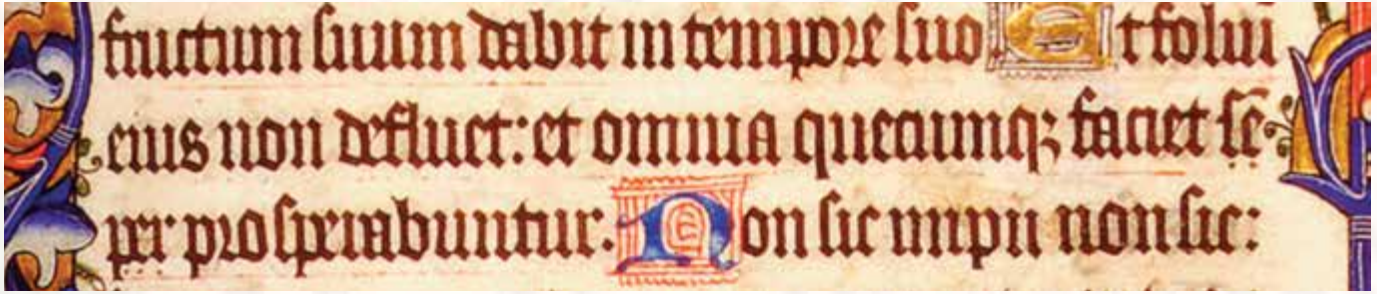 fructum suum dabit in tempore suo Et foliū
eius non defluet: et omnia quecumqꝫ faciet sē
per prosperabuntur. Non sic impii non sic: